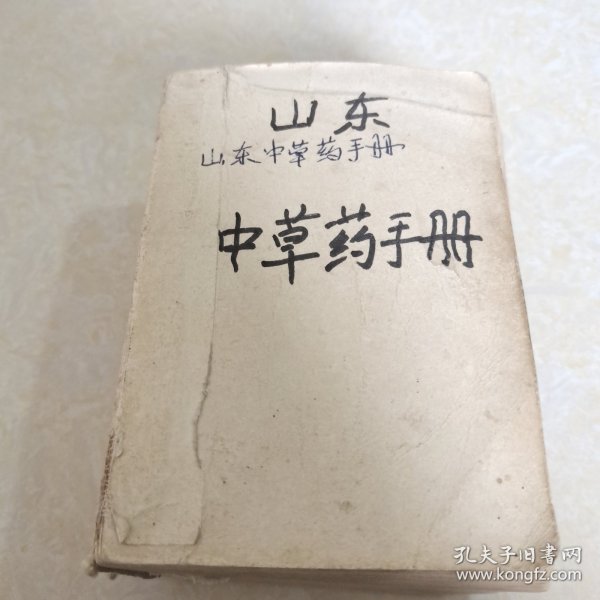 山东
山东中草药手册
中草药手册
孔夫子旧书网
www.kongfz.com